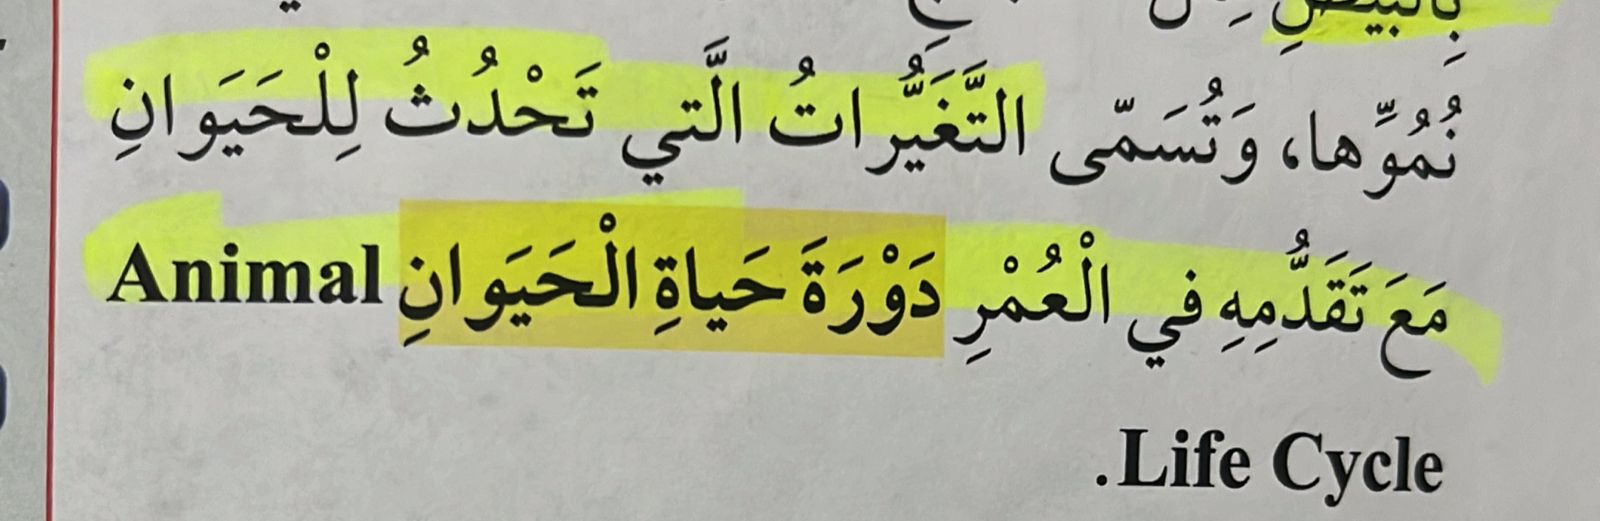 بِالْبَيْضِ
نُمُوِّها، وَتُسَمّى التَّغَيُّراتُ الَّتي تَحْدُثُ لِلْحَيَوانِ
مَعَ تَقَدُّمِهِ في الْعُمْرِ دَوْرَةَ حَياةِ الْحَيَوانِ Animal
Life Cycle.